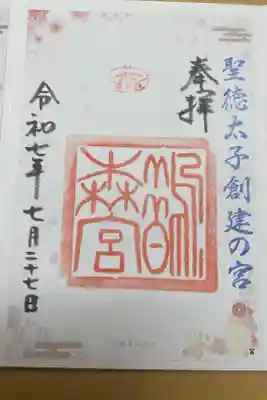 聖徳太子創建の宮
奉拝
鵲森宮
令和七年 七月二十七日